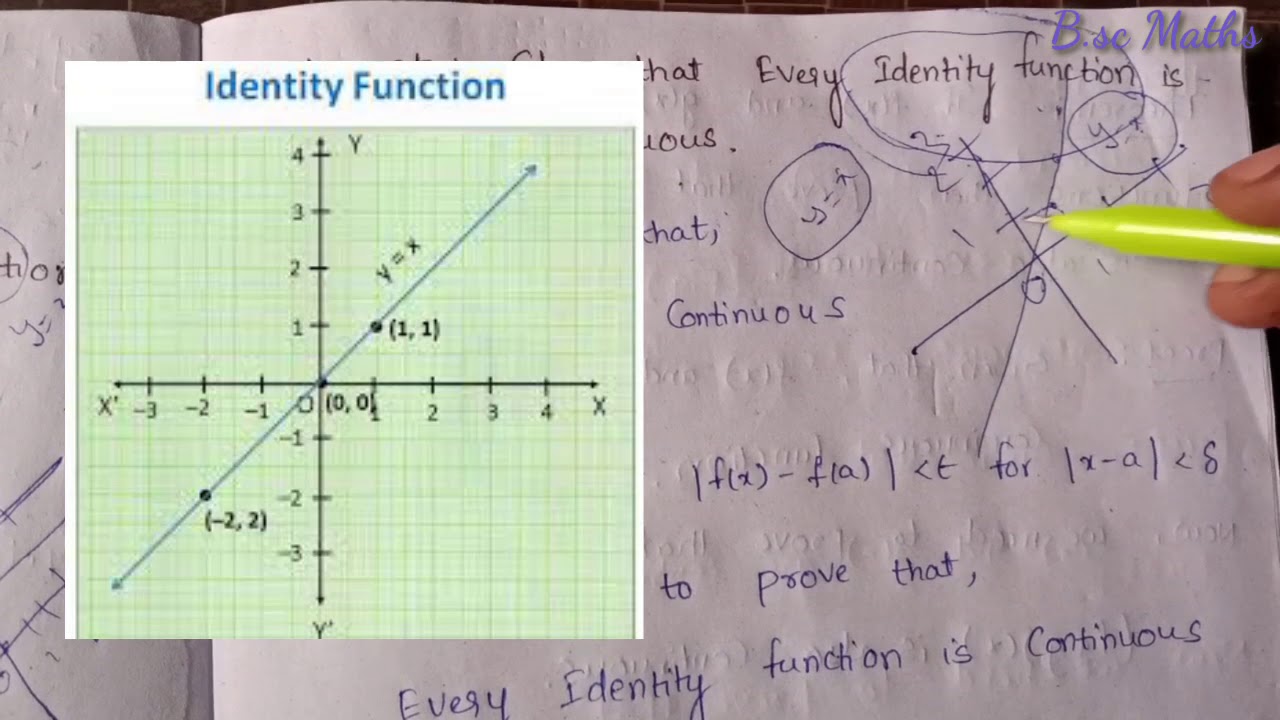 B.sc Maths
that Every Identity function is
uous.
y=x
y=x
that;
Continuous
|f(x) - f(a)| <ε for |x-a| < δ
to prove that,
Every Identity function is Continuous
Identity Function
Y
4
3
2
1
y = x
(1, 1)
X' -3 -2 -1 O (0, 0) 1 2 3 4 X
-1
-2
(-2, 2)
-3
Y'
O